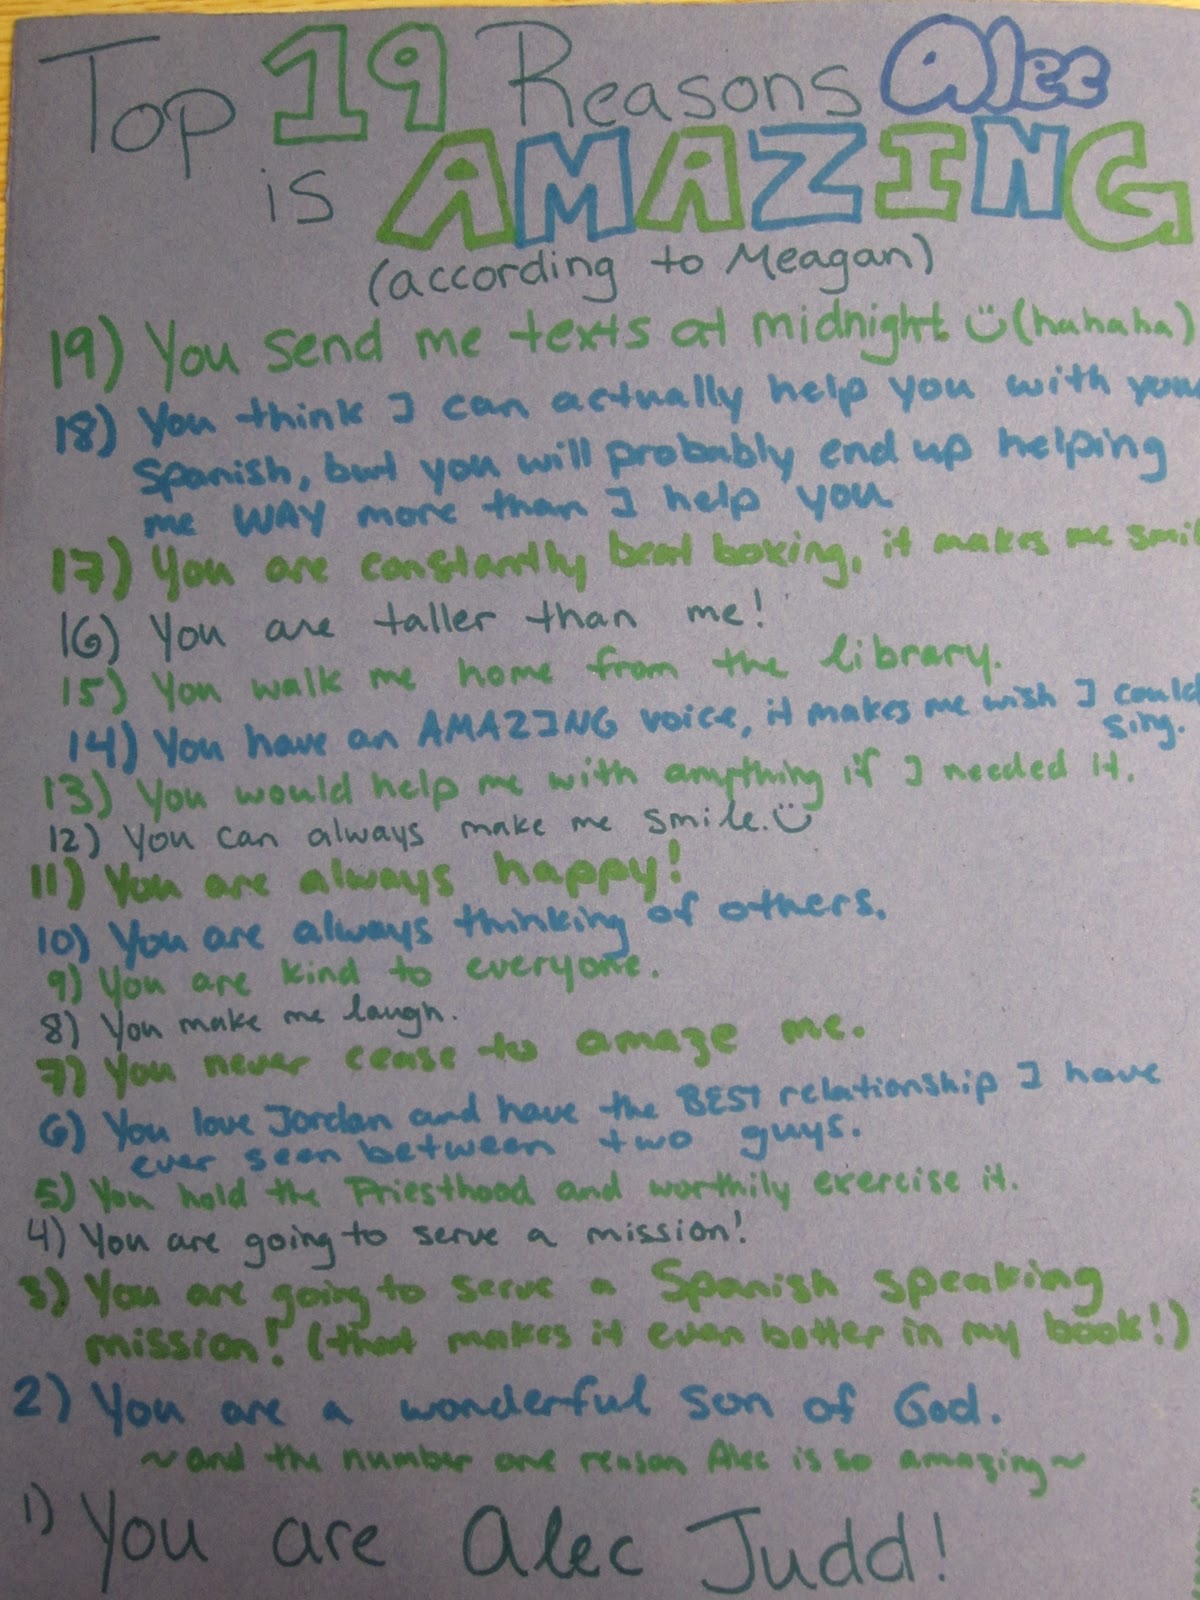 Top 19 Reasons Alec
is AMAZING
(according to Meagan)
19) You send me texts at midnight. (hahaha)
18) You think I can actually help you with your
Spanish, but you will probably end up helping
me WAY more than I help you
17) You are constantly beat boxing, it makes me smil
16) You are taller than me!
15) You walk me home from the library.
14) You have an AMAZING voice, it makes me wish I could
sing.
13) You would help me with anything if I needed it.
12) You can always make me smile.
11) You are always happy!
10) You are always thinking of others.
9) You are kind to everyone.
8) You make me laugh.
7) You never cease to amaze me.
6) You love Jordan and have the BEST relationship I have
ever seen between two guys.
5) You hold the Priesthood and worthily exercise it.
4) You are going to serve a mission!
3) You are going to serve a Spanish speaking
mission! (that makes it even better in my book!)
2) You are a wonderful son of God.
~and the number one reason Alec is so amazing~
1) You are Alec Judd!